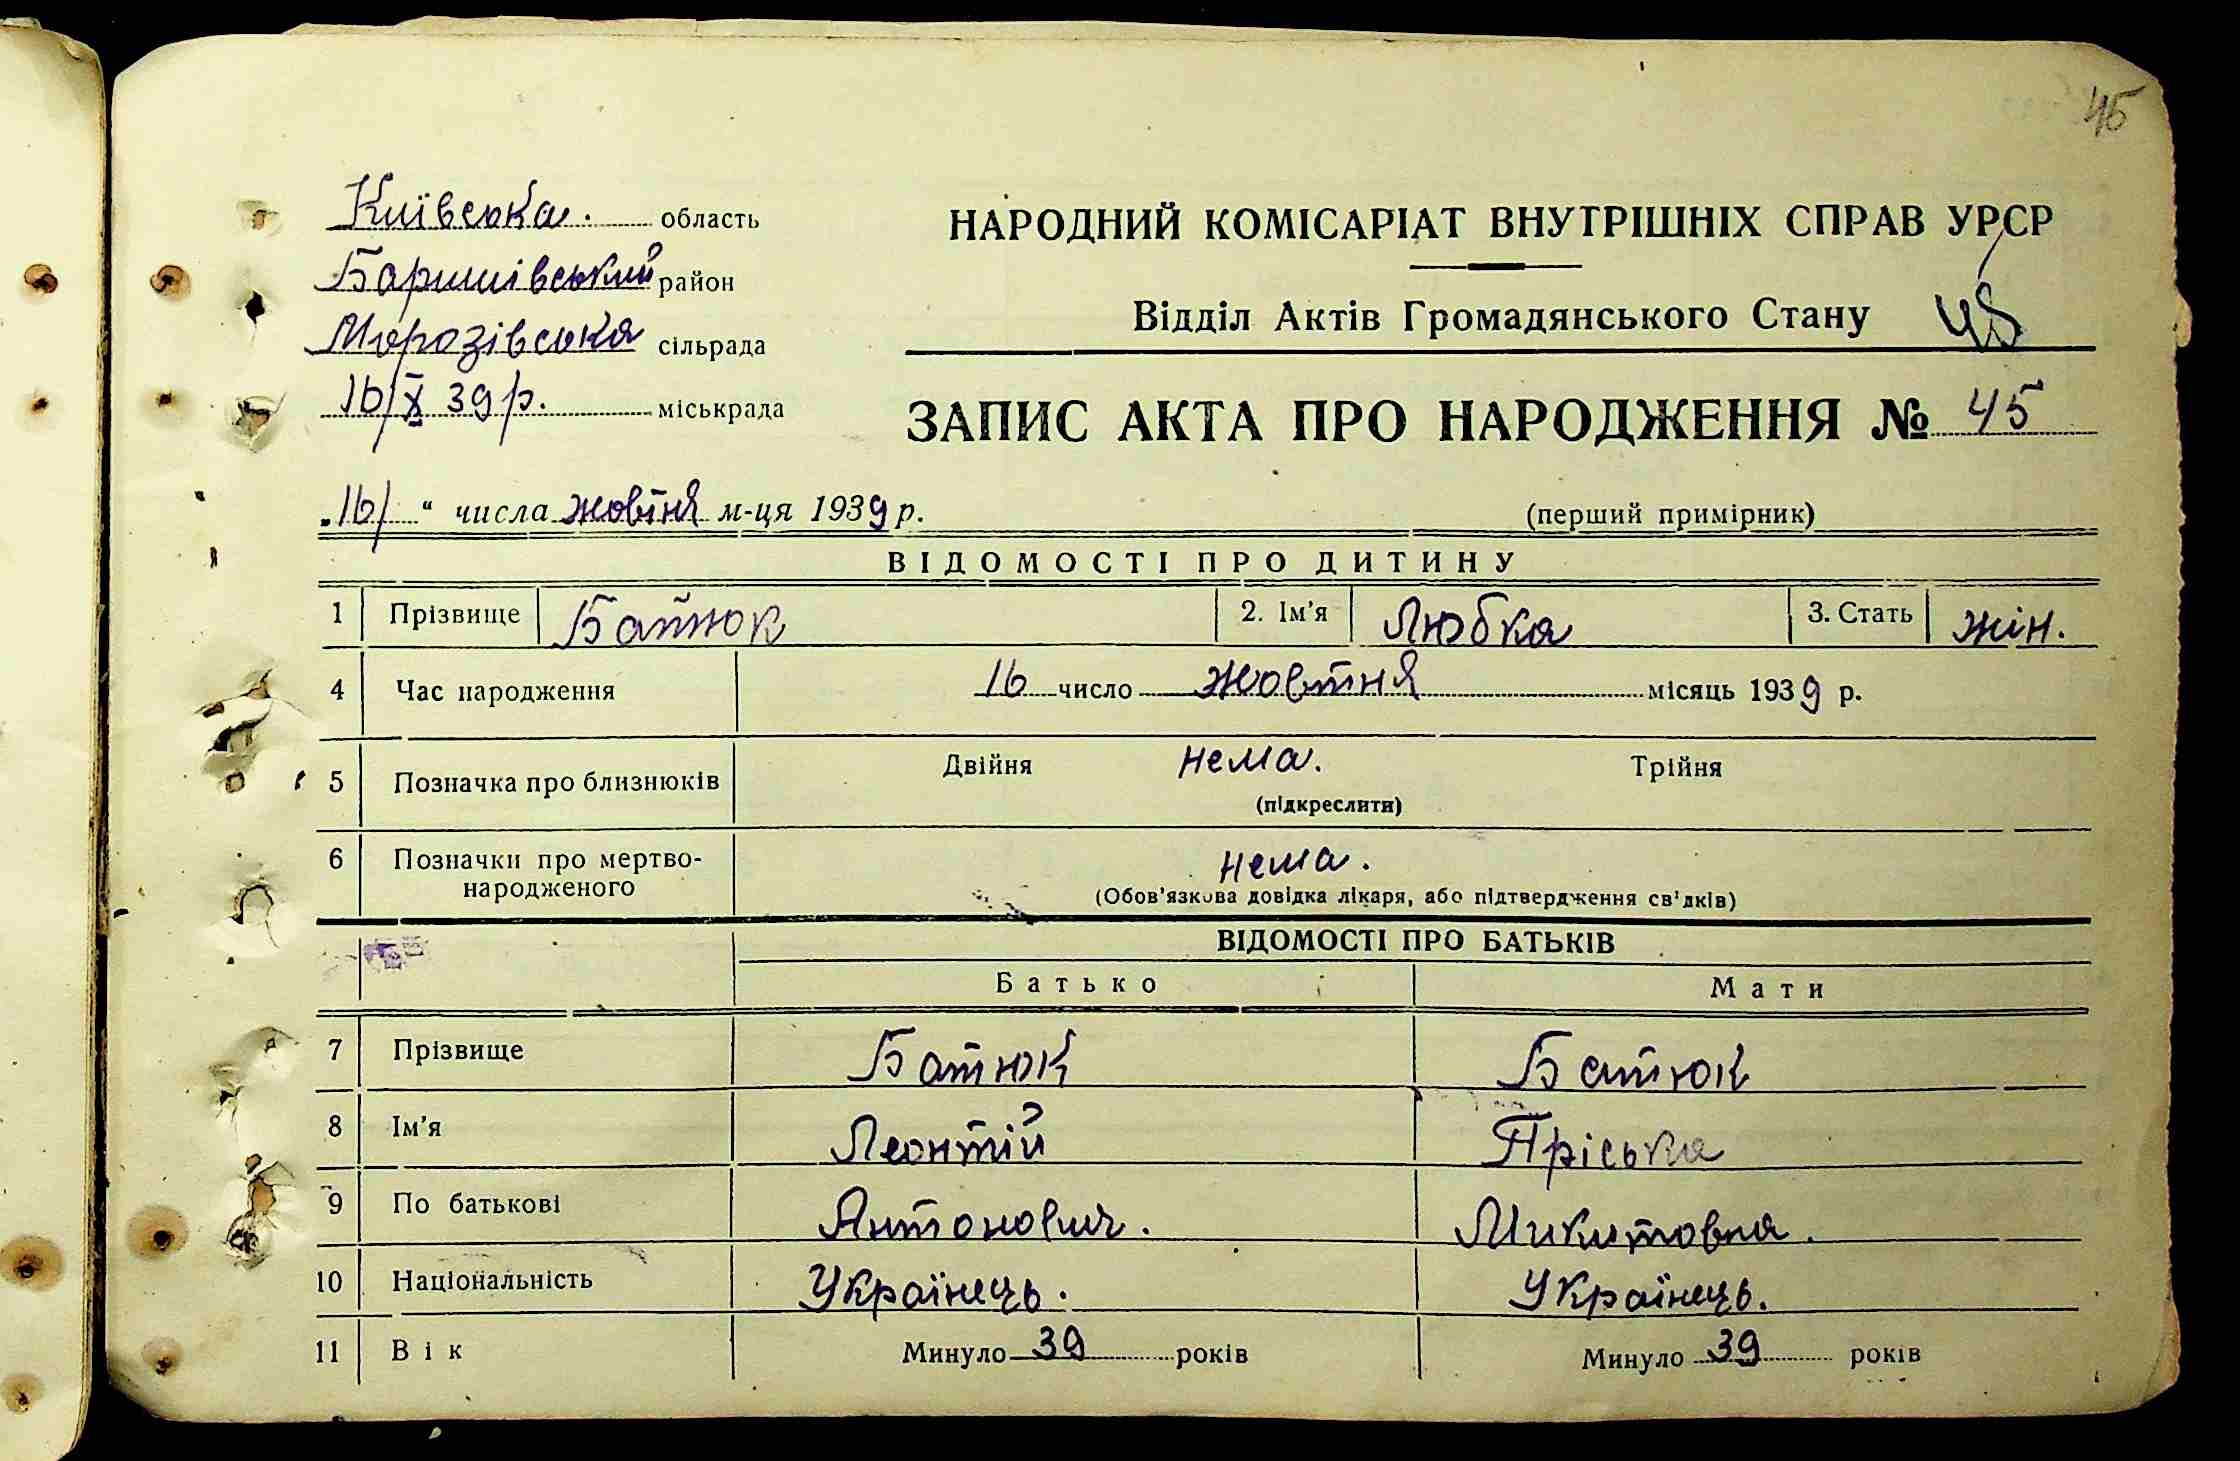 45
Київська область
НАРОДНИЙ КОМІСАРІАТ ВНУТРІШНІХ СПРАВ УРСР
Баришівський район
Відділ Актів Громадянського Стану
Морозівська сільрада
16/X 39 р. міськрада
ЗАПИС АКТА ПРО НАРОДЖЕННЯ № 45
„16/“ числа жовтня м-ця 1939 р. (перший примірник)
ВІДОМОСТІ ПРО ДИТИНУ
1 Прізвище Батюк 2. Ім’я Любка 3. Стать жін.
4 Час народження 16 число жовтня місяць 1939 р.
5 Позначка про близнюків Двійня нема. Трійня
(підкреслити)
6 Позначки про мертвонародженого нема.
(Обов’язкова довідка лікаря, або підтвердження св’дків)
ВІДОМОСТІ ПРО БАТЬКІВ
Батько Мати
7 Прізвище Батюк Батюк
8 Ім’я Леонтій Пріська
9 По батькові Антонович. Микитовна.
10 Національність Українець. Українець.
11 Вік Минуло 39 років Минуло 39 років